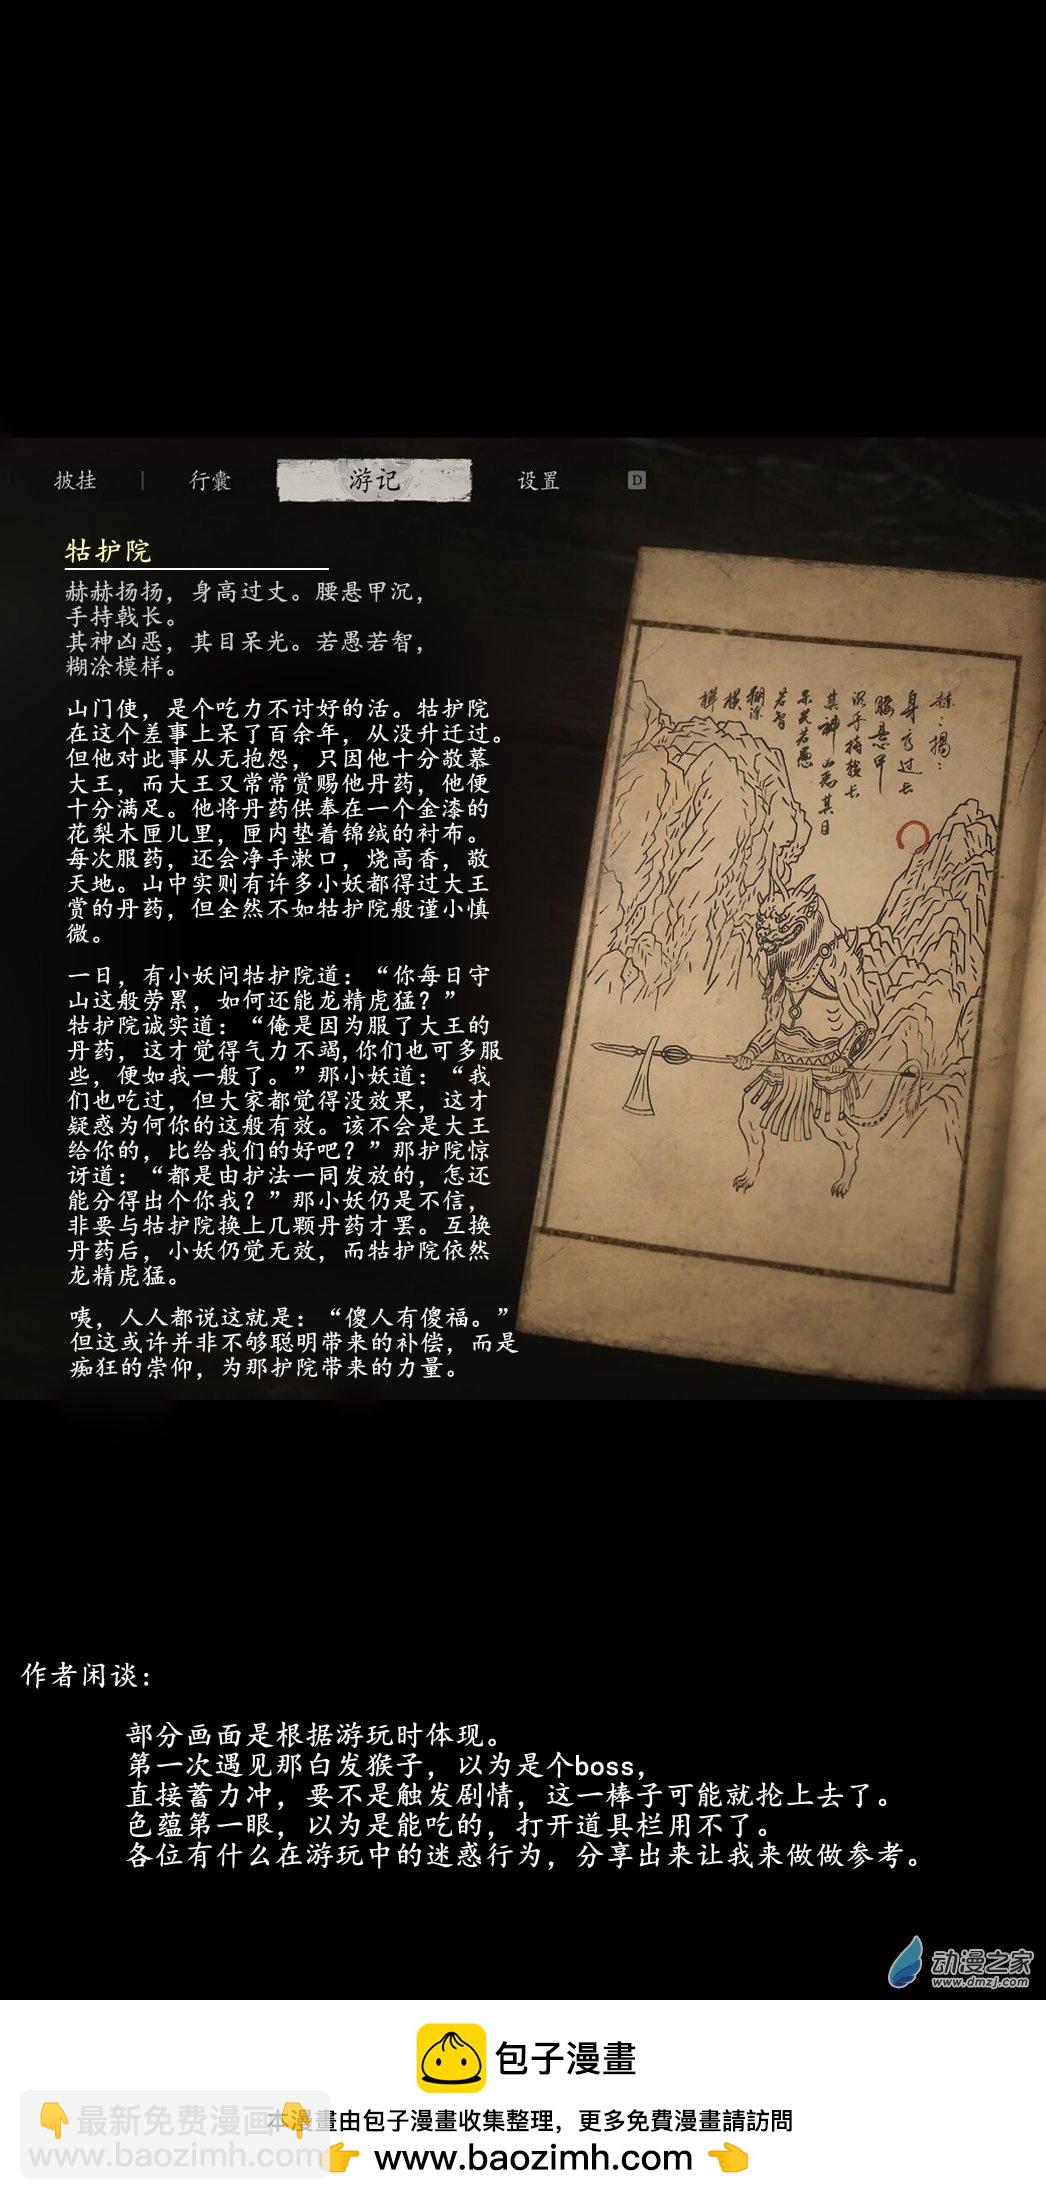 披挂 | 行囊 游记 设置 D
牯护院
赫赫扬扬，身高过丈。腰悬甲沉，
手持戟长。
其神凶恶，其目呆光。若愚若智，
糊涂模样。
山门使，是个吃力不讨好的活。牯护院
在这个差事上呆了百余年，从没升迁过。
但他对此事从无抱怨，只因他十分敬慕
大王，而大王又常常赏赐他丹药，他便
十分满足。他将丹药供奉在一个金漆的
花梨木匣儿里，匣内垫着锦绒的衬布。
每次服药，还会净手漱口，烧高香，敬
天地。山中实则有许多小妖都得过大王
赏的丹药，但全然不如牯护院般谨小慎
微。
一日，有小妖问牯护院道：“你每日守
山这般劳累，如何还能龙精虎猛？”
牯护院诚实道：“俺是因为服了大王的
丹药，这才觉得气力不竭,你们也可多服
些，便如我一般了。”那小妖道：“我
们也吃过，但大家都觉得没效果，这才
疑惑为何你的这般有效。该不会是大王
给你的，比给我们的好吧？”那护院惊
讶道：“都是由护法一同发放的，怎还
能分得出个你我？”那小妖仍是不信，
非要与牯护院换上几颗丹药才罢。互换
丹药后，小妖仍觉无效，而牯护院依然
龙精虎猛。
咦，人人都说这就是：“傻人有傻福。”
但这或许并非不够聪明带来的补偿，而是
痴狂的崇仰，为那护院带来的力量。
身高过长
腰悬甲
沉手持戟长
其神凶恶其目
呆光若愚
若智
糊涂
模
样
作者闲谈：
部分画面是根据游玩时体现。
第一次遇见那白发猴子，以为是个boss，
直接蓄力冲，要不是触发剧情，这一棒子可能就抡上去了。
色蕴第一眼，以为是能吃的，打开道具栏用不了。
各位有什么在游玩中的迷惑行为，分享出来让我来做做参考。
动漫之家
www.dmzj.com
包子漫畫
👇最新免费漫画👇
www.baozimh.com
本漫畫由包子漫畫收集整理，更多免費漫畫請訪問
👉 www.baozimh.com 👈